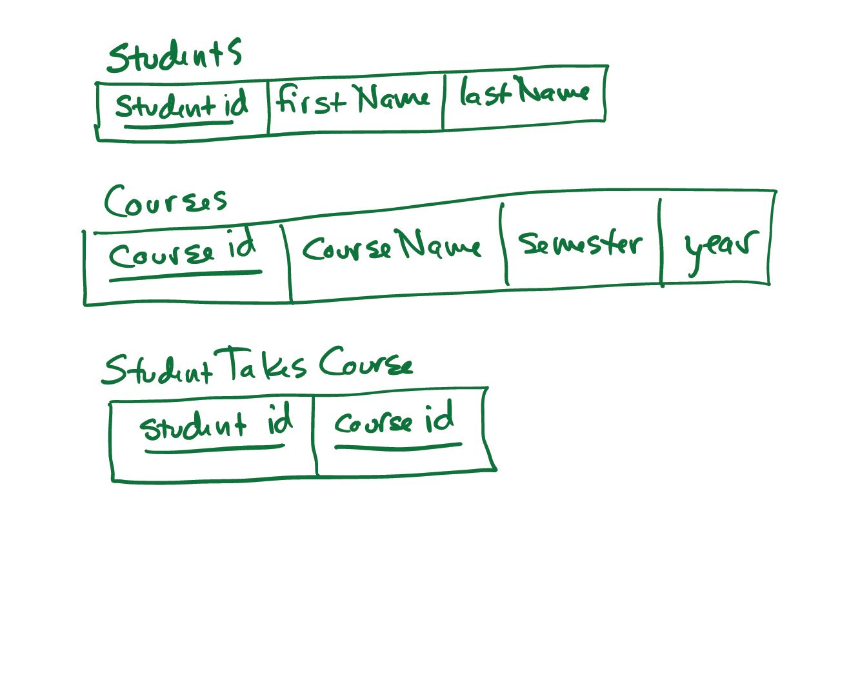 Students
Student id firstName lastName
Courses
Course id CourseName Semester year
StudentTakes Course
Student id Course id